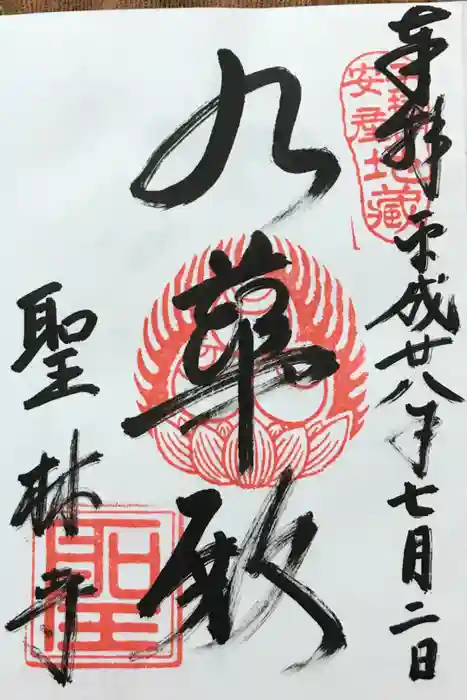 奉拝
平成廿八年七月二日
安産地藏
九華殿
聖林寺
聖